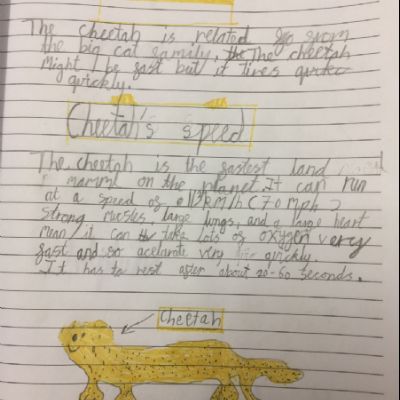 The cheetah is related go from
the big cat family, the The cheetah
Might be fast but it tires quick
quickly.
Cheetah's speed
The cheetah is the fastest land
mamml on the planet. It can run
at a speed of 112km/h (70mph)
Strong muscles, large lungs, and a large heart
mean it can th take lots of oxygen very
fast and so acelarate very quickly.
It has to rest after about 20-60 seconds.
Cheetah